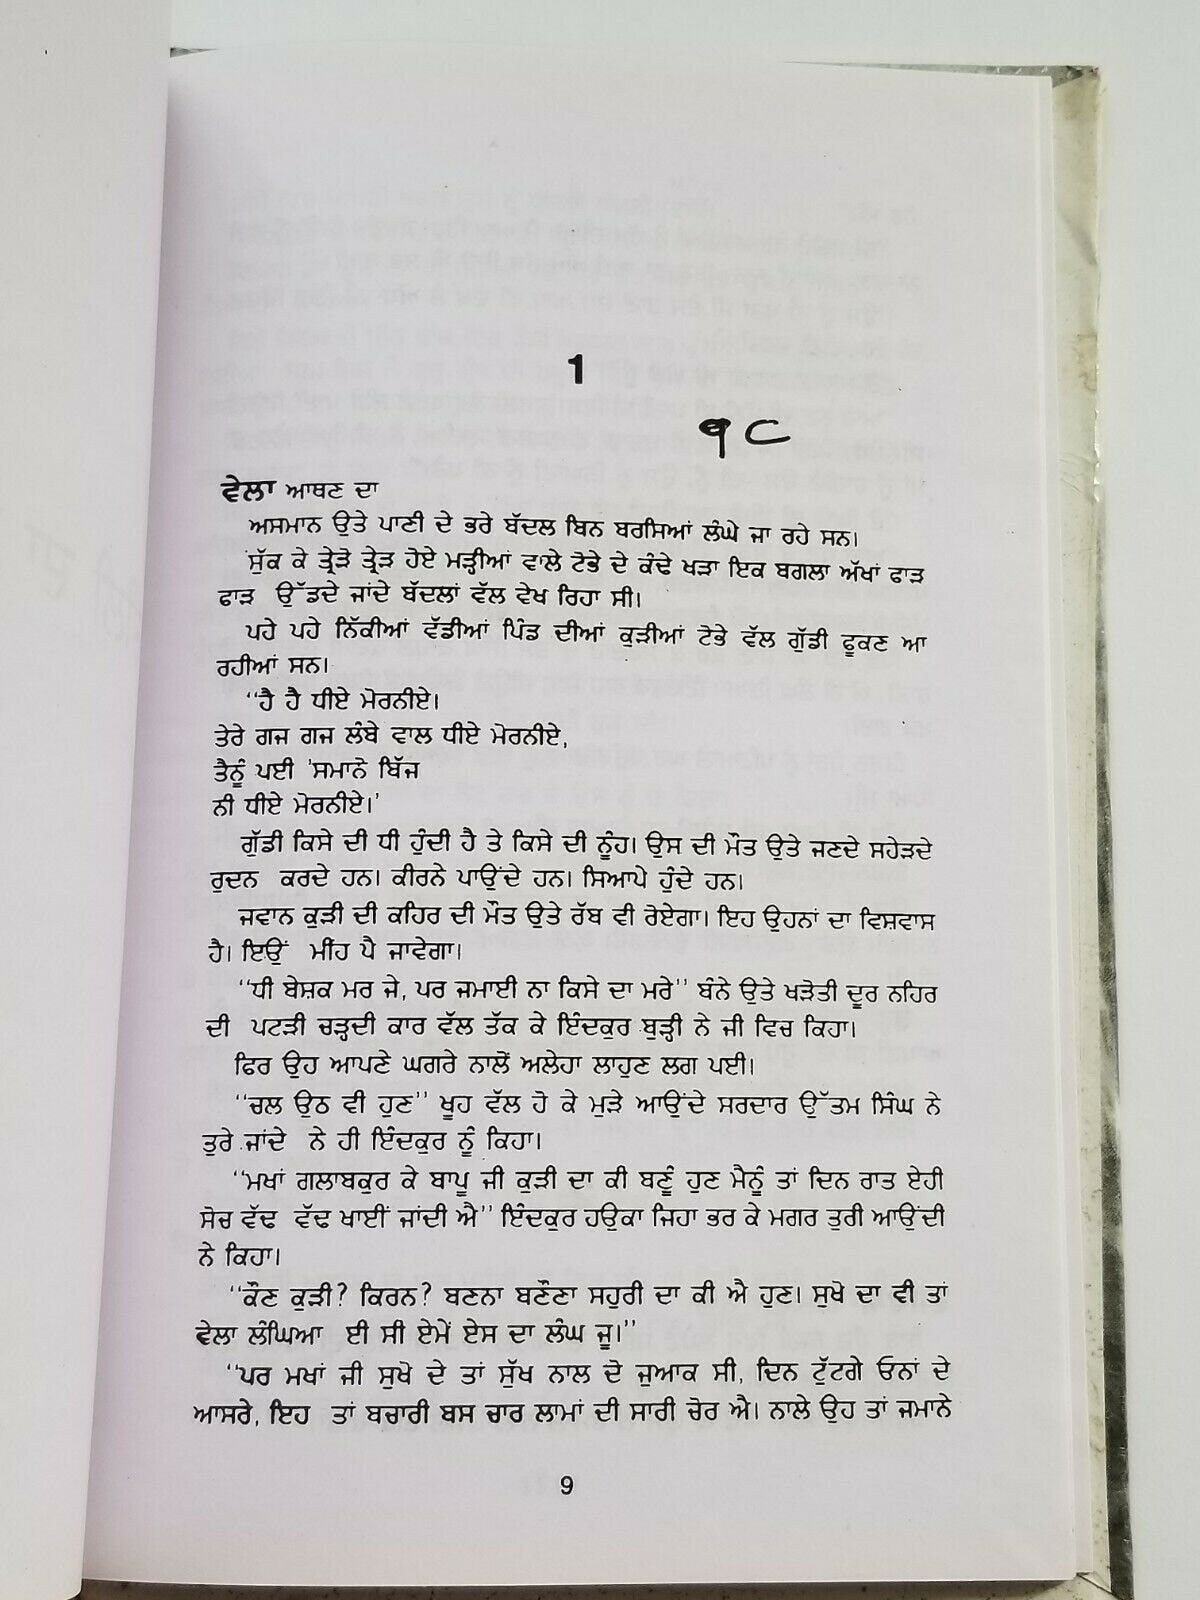 1
੧੮
ਵੇਲਾ ਆਥਣ ਦਾ
ਅਸਮਾਨ ਉਤੇ ਪਾਣੀ ਦੇ ਭਰੇ ਬੱਦਲ ਬਿਨ ਬਰਸਿਆਂ ਲੰਘੇ ਜਾ ਰਹੇ ਸਨ।
ਸੁੱਕ ਕੇ ਤ੍ਰੇੜੋ ਤ੍ਰੇੜ ਹੋਏ ਮੜ੍ਹੀਆਂ ਵਾਲੇ ਟੋਭੇ ਦੇ ਕੰਢੇ ਖੜਾ ਇਕ ਬਗਲਾ ਅੱਖਾਂ ਫਾੜ
ਫਾੜ ਉੱਡਦੇ ਜਾਂਦੇ ਬੱਦਲਾਂ ਵੱਲ ਵੇਖ ਰਿਹਾ ਸੀ।
ਪਹੇ ਪਹੇ ਨਿੱਕੀਆਂ ਵੱਡੀਆਂ ਪਿੰਡ ਦੀਆਂ ਕੁੜੀਆਂ ਟੋਭੇ ਵੱਲ ਗੁੱਡੀ ਫੂਕਣ ਆ
ਰਹੀਆਂ ਸਨ।
“ਹੈ ਹੈ ਧੀਏ ਮੋਰਨੀਏ।
ਤੇਰੇ ਗਜ ਗਜ ਲੰਬੇ ਵਾਲ ਧੀਏ ਮੋਰਨੀਏ,
ਤੈਨੂੰ ਪਈ 'ਸਮਾਨੋ ਬਿੱਜ
ਨੀ ਧੀਏ ਮੋਰਨੀਏ।’
ਗੁੱਡੀ ਕਿਸੇ ਦੀ ਧੀ ਹੁੰਦੀ ਹੈ ਤੇ ਕਿਸੇ ਦੀ ਨੂੰਹ। ਉਸ ਦੀ ਮੌਤ ਉਤੇ ਜਣਦੇ ਸਹੇੜਦੇ
ਰੁਦਨ ਕਰਦੇ ਹਨ। ਕੀਰਨੇ ਪਾਉਂਦੇ ਹਨ। ਸਿਆਪੇ ਹੁੰਦੇ ਹਨ।
ਜਵਾਨ ਕੁੜੀ ਦੀ ਕਹਿਰ ਦੀ ਮੌਤ ਉਤੇ ਰੱਬ ਵੀ ਰੋਏਗਾ। ਇਹ ਉਹਨਾਂ ਦਾ ਵਿਸ਼ਵਾਸ
ਹੈ। ਇਉਂ ਮੀਂਹ ਪੈ ਜਾਵੇਗਾ।
“ਧੀ ਬੇਸ਼ਕ ਮਰ ਜੇ, ਪਰ ਜਮਾਈ ਨਾ ਕਿਸੇ ਦਾ ਮਰੇ” ਬੰਨੇ ਉਤੇ ਖੜੋਤੀ ਦੂਰ ਨਹਿਰ
ਦੀ ਪਟੜੀ ਚੜ੍ਹਦੀ ਕਾਰ ਵੱਲ ਤੱਕ ਕੇ ਇੰਦਕੁਰ ਬੁੜ੍ਹੀ ਨੇ ਜੀ ਵਿਚ ਕਿਹਾ।
ਫਿਰ ਉਹ ਆਪਣੇ ਘਗਰੇ ਨਾਲੋਂ ਅਲੇਹਾ ਲਾਹੁਣ ਲਗ ਪਈ।
“ਚਲ ਉਠ ਵੀ ਹੁਣ” ਖੂਹ ਵੱਲ ਹੋ ਕੇ ਮੁੜੇ ਆਉਂਦੇ ਸਰਦਾਰ ਉੱਤਮ ਸਿੰਘ ਨੇ
ਤੁਰੇ ਜਾਂਦੇ ਨੇ ਹੀ ਇੰਦਕੁਰ ਨੂੰ ਕਿਹਾ।
“ਮਖਾਂ ਗਲਾਬਕੁਰ ਕੇ ਬਾਪੂ ਜੀ ਕੁੜੀ ਦਾ ਕੀ ਬਣੂੰ ਹੁਣ ਮੈਨੂੰ ਤਾਂ ਦਿਨ ਰਾਤ ਏਹੀ
ਸੋਚ ਵੱਢ ਵੱਢ ਖਾਈਂ ਜਾਂਦੀ ਐ” ਇੰਦਕੁਰ ਹਉਕਾ ਜਿਹਾ ਭਰ ਕੇ ਮਗਰ ਤੁਰੀ ਆਉਂਦੀ
ਨੇ ਕਿਹਾ।
“ਕੌਣ ਕੁੜੀ? ਕਿਰਨ? ਬਣਨਾ ਬਣੌਣਾ ਸਹੁਰੀ ਦਾ ਕੀ ਐ ਹੁਣ। ਸੁਖੋ ਦਾ ਵੀ ਤਾਂ
ਵੇਲਾ ਲੰਘਿਆ ਈ ਸੀ ਏਮੇਂ ਏਸ ਦਾ ਲੰਘ ਜੂ।”
“ਪਰ ਮਖਾਂ ਜੀ ਸੁਖੋ ਦੇ ਤਾਂ ਸੁੱਖ ਨਾਲ ਦੋ ਜੁਆਕ ਸੀ, ਦਿਨ ਟੁੱਟਗੇ ਓਨਾਂ ਦੇ
ਆਸਰੇ, ਇਹ ਤਾਂ ਬਚਾਰੀ ਬਸ ਚਾਰ ਲਾਮਾਂ ਦੀ ਸਾਰੀ ਚੋਰ ਐ। ਨਾਲੇ ਉਹ ਤਾਂ ਜਮਾਨੇ
9